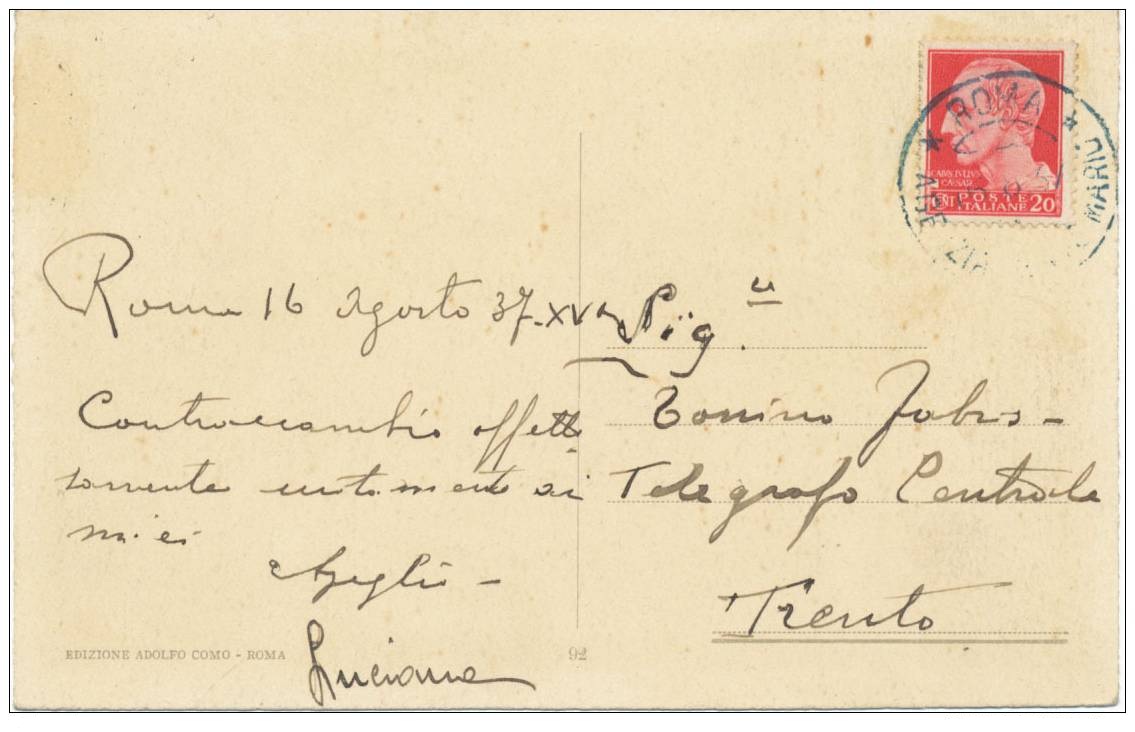 Roma 16 Agosto 37-XVo
Contraccambio affettu
samente unitamente ai
miei
Azeglio -
Luciana
EDIZIONE ADOLFO COMO - ROMA
92
CAIVS IVLIVS
CAESAR
CENT POSTE
ITALIANE 20
ROMA
MARIO
Sig.
Tonino Fabris -
Telegrafo Centrale
Trento